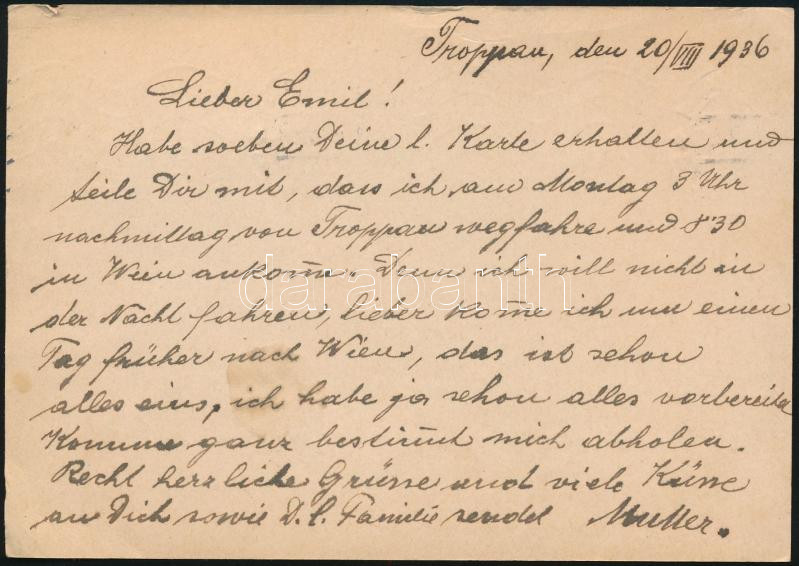 Troppau, den 20/VIII 1936
Lieber Emil!
Habe soeben Deine l. Karte erhalten und
teile Dir mit, dass ich am Montag 3 Uhr
nachmittag von Troppau wegfahre und 8'30
in Wien ankom̅e. Denn ich will nicht in
der Nacht fahren, lieber kom̅e ich um einen
Tag früher nach Wien, das ist schon
alles eins, ich habe ja schon alles vorbereitet
Komme ganz bestim̅t mich abholen.
Recht herzliche Grüsse und viele Küsse
an Dich sowie D. l. Familie sendet Mutter.
darabanth